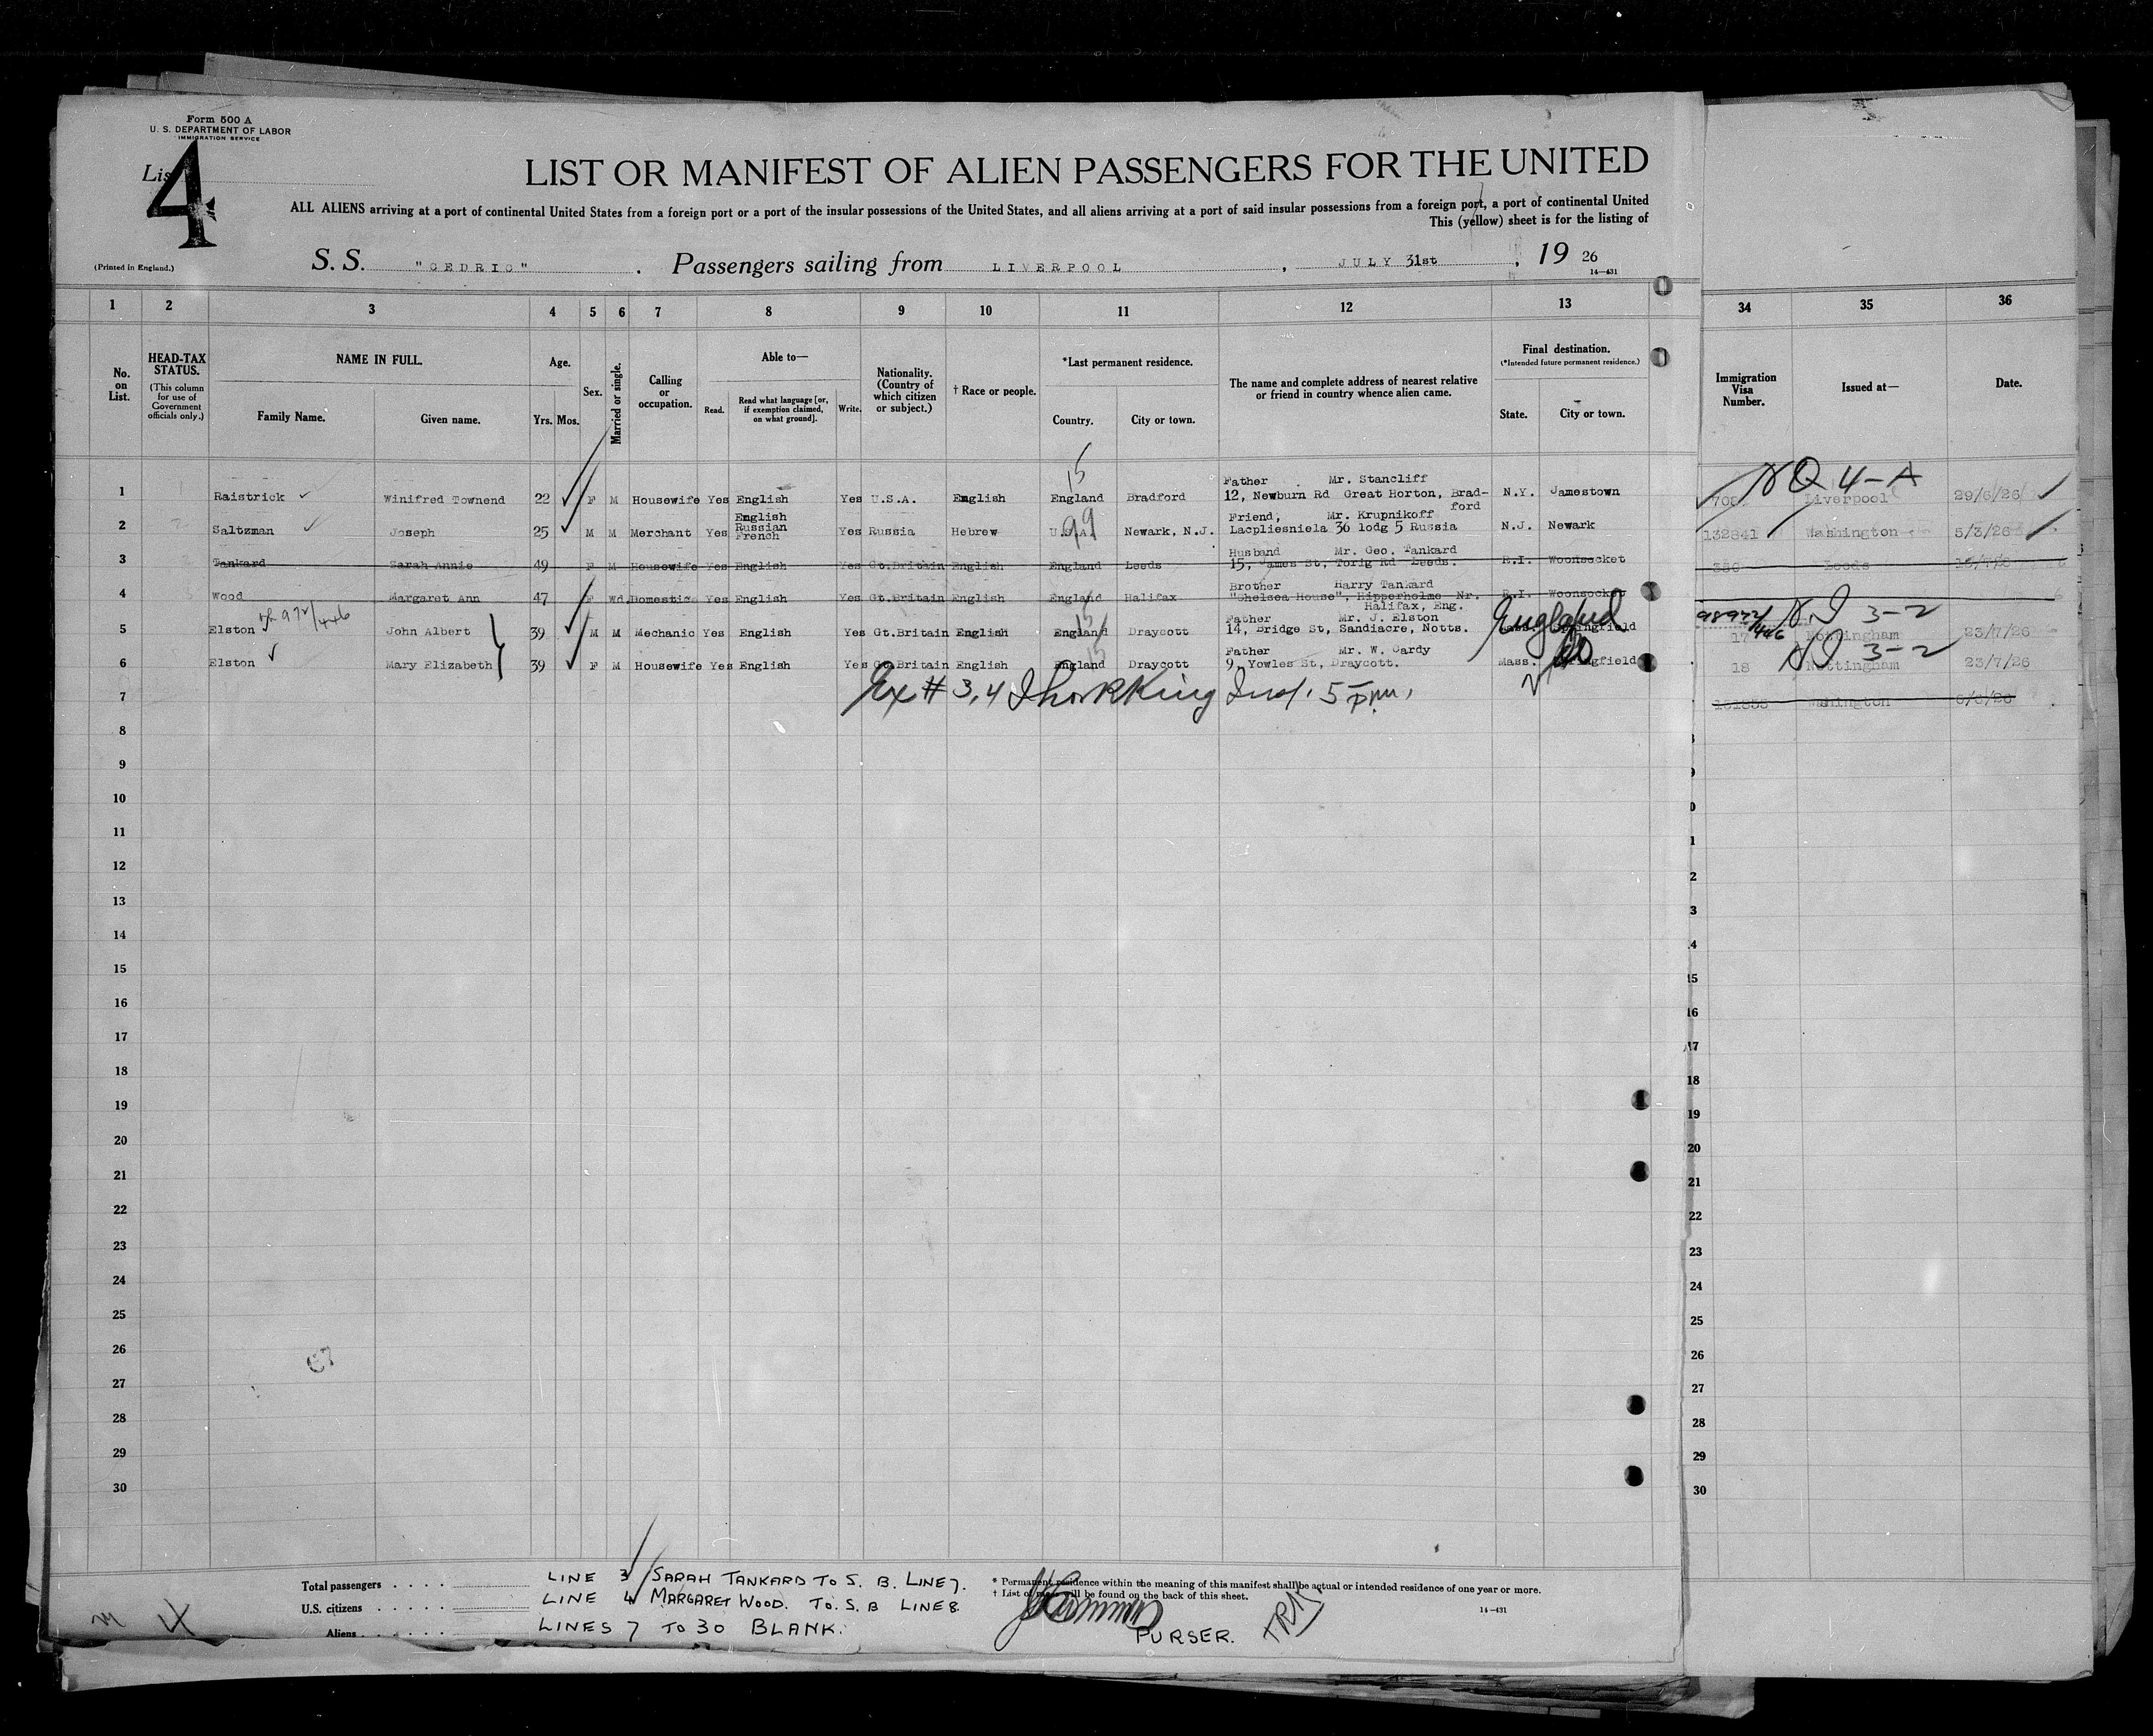 Form 500 A
U. S. DEPARTMENT OF LABOR
IMMIGRATION SERVICE
4
LIST OR MANIFEST OF ALIEN PASSENGERS FOR THE UNITED
ALL ALIENS arriving at a port of continental United States from a foreign port or a port of the insular possessions of the United States, and all aliens arriving at a port of said insular possessions from a foreign port, a port of continental United
This (yellow) sheet is for the listing of
(Printed in England.)
S. S. "CEDRIC". Passengers sailing from LIVERPOOL, JULY 31st, 19 26
14—431
1 2 3 4 5 6 7 8 9 10 11 12 13 34 35 36
No. on List.
HEAD-TAX STATUS.
(This column for use of Government officials only.)
NAME IN FULL.
Family Name. Given name.
Age.
Yrs. Mos.
Sex.
Married or single.
Calling or occupation.
Able to—
Read. Read what language [or, if exemption claimed, on what ground]. Write.
Nationality. (Country of which citizen or subject.)
† Race or people.
*Last permanent residence.
Country. City or town.
The name and complete address of nearest relative or friend in country whence alien came.
Final destination.
(*Intended future permanent residence.)
State. City or town.
Immigration Visa Number.
Issued at—
Date.
15
NQ 4-A
1 Raistrick Winifred Townend 22 F M Housewife Yes English Yes U.S.A. English England Bradford Father Mr. Stancliff 12, Newburn Rd Great Horton, Bradford N.Y. Jamestown 708 Liverpool 29/6/26
2 Saltzman Joseph 25 M M Merchant Yes English Russian French Yes Russia Hebrew U.S.A. 99 Newark, N.J. Friend, Mr. Krupnikoff Lacpliesniela 36 lodg 5 Russia N.J. Newark 132841 Washington 5/3/26
3 Tankard Sarah Annie 49 F M Housewife Yes English Yes Gt.Britain English England Leeds Husband Mr. Geo. Tankard 15, James St, Torig Rd Leeds. R.I. Woonsocket 350 Leeds
4 Wood Margaret Ann 47 F Wd. Domestic Yes English Yes Gt.Britain English England Halifax Brother Harry Tankard "Chelsea House", Hipperholme Nr. Halifax, Eng. R.I. Woonsocket
5 Elston John Albert 39 M M Mechanic Yes English Yes Gt.Britain English England Draycott Father Mr. J. Elston 14, Bridge St, Sandiacre, Notts. England Springfield 98972/446 3-2 17 Nottingham 23/7/26
6 Elston Mary Elizabeth 39 F M Housewife Yes English Yes Gt.Britain English England 15 Draycott Father Mr. W. Cardy 9, Yowles St, Draycott. Mass. Springfield 3-2 18 Nottingham 23/7/26
7 Ex # 3,4 5 pm. Washington 6/6/26
8
9
10
11
12
13
14
15
16
17
18
19
20
21
22
23
24
25
26
27
28
29
30
Total passengers
U.S. citizens
Aliens
LINE 3 SARAH TANKARD TO S. B. LINE 7.
LINE 4 MARGARET WOOD. TO. S. B LINE 8.
LINES 7 TO 30 BLANK.
* Permanent residence within the meaning of this manifest shall be actual or intended residence of one year or more.
† List of races will be found on the back of this sheet.
14—431
PURSER.